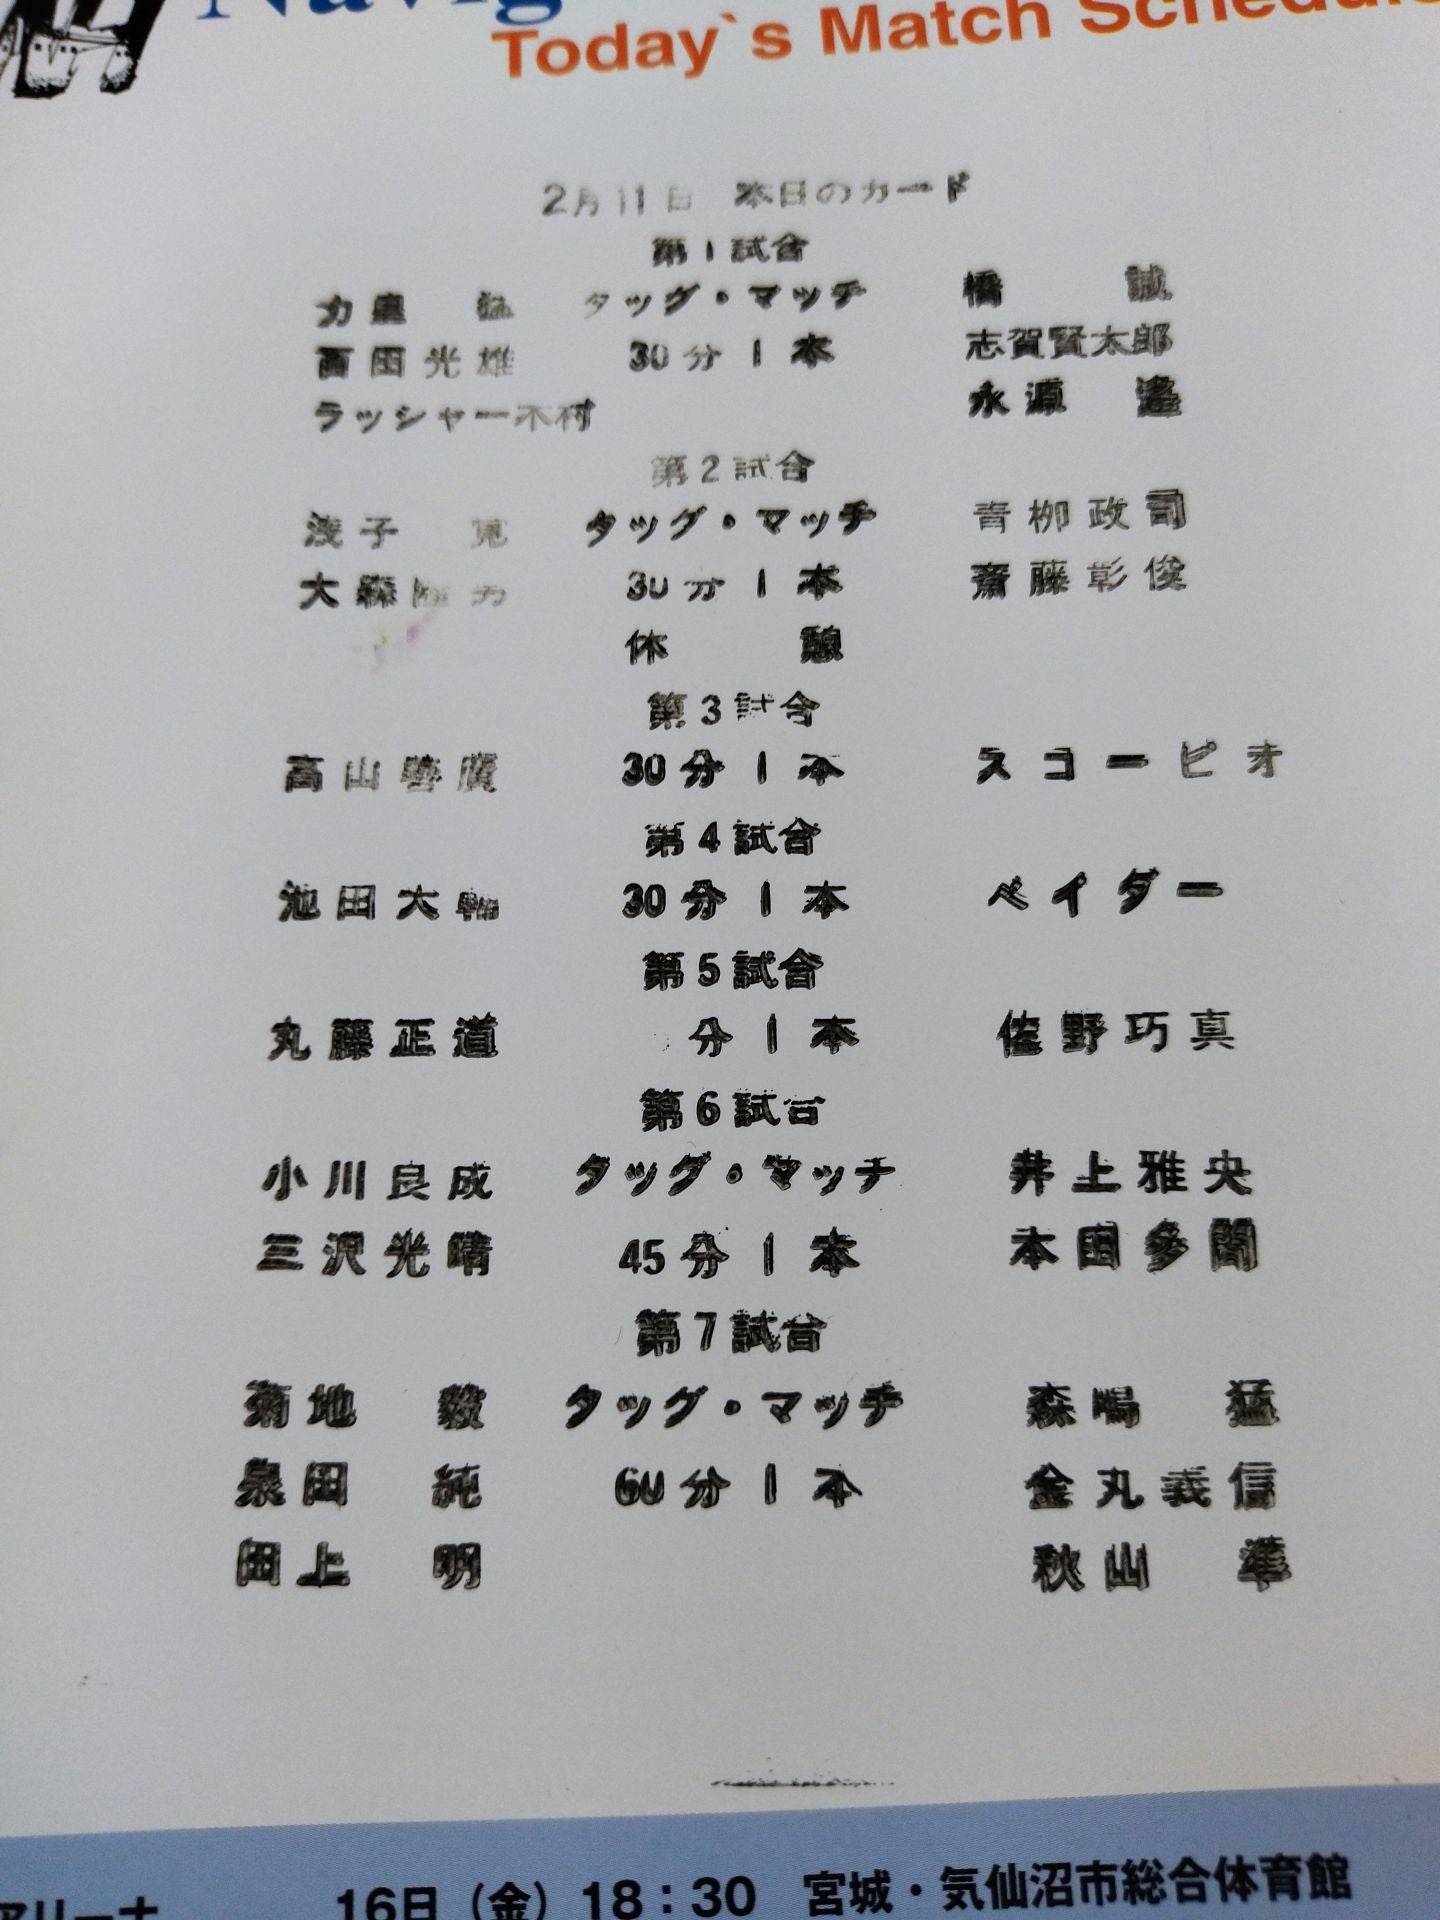 Navig
Today`s Match Schedule
2月11日 本日のカード
第1試合
力皇 猛 タッグ・マッチ 橋 誠
百田光雄 30分1本 志賀賢太郎
ラッシャー木村 永源 遙
第2試合
浅子 覚 タッグ・マッチ 青柳政司
大森隆男 30分1本 齋藤彰俊
休憩
第3試合
高山善廣 30分1本 スコーピオ
第4試合
池田大輔 30分1本 ベイダー
第5試合
丸藤正道 分1本 佐野巧真
第6試合
小川良成 タッグ・マッチ 井上雅央
三沢光晴 45分1本 本田多聞
第7試合
菊地 毅 タッグ・マッチ 森嶋 猛
泉田 純 60分1本 金丸義信
田上 明 秋山 準
アリーナ 16日（金）18：30 宮城・気仙沼市総合体育館